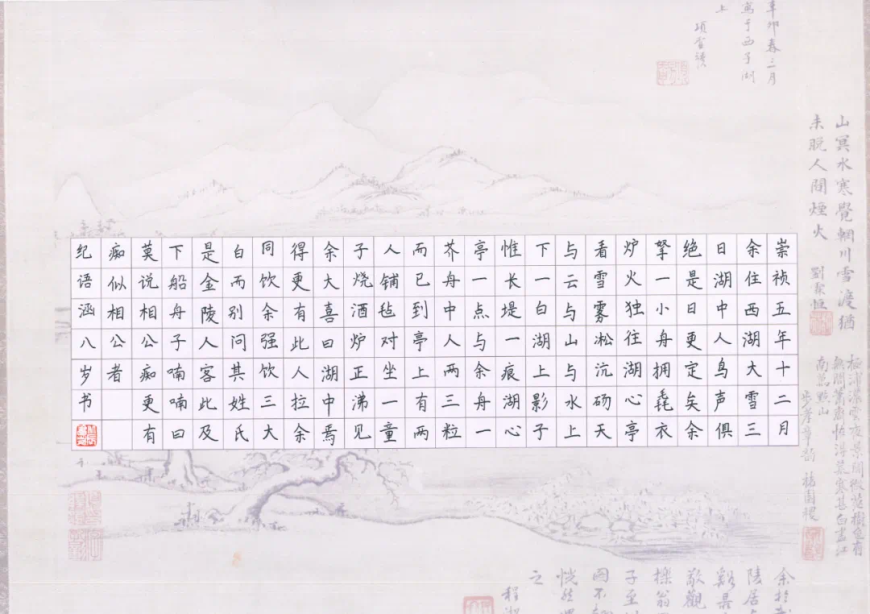 辛卯春三月
寫于西子湖
上
山冥水寒覺輞川雪渡猶
未脫人間煙火
崇祯五年十二月
余住西湖大雪三
日湖中人鸟声俱
绝是日更定矣余
拏一小舟拥毳衣
炉火独往湖心亭
看雪雾凇沆砀天
与云与山与水上
下一白湖上影子
惟长堤一痕湖心
亭一点与余舟一
芥舟中人两三粒
而已到亭上有两
人铺毡对坐一童
子烧酒炉正沸见
余大喜曰湖中焉
得更有此人拉余
同饮余强饮三大
白而别问其姓氏
是金陵人客此及
下船舟子喃喃曰
莫说相公痴更有
痴似相公者
纪语涵八岁书